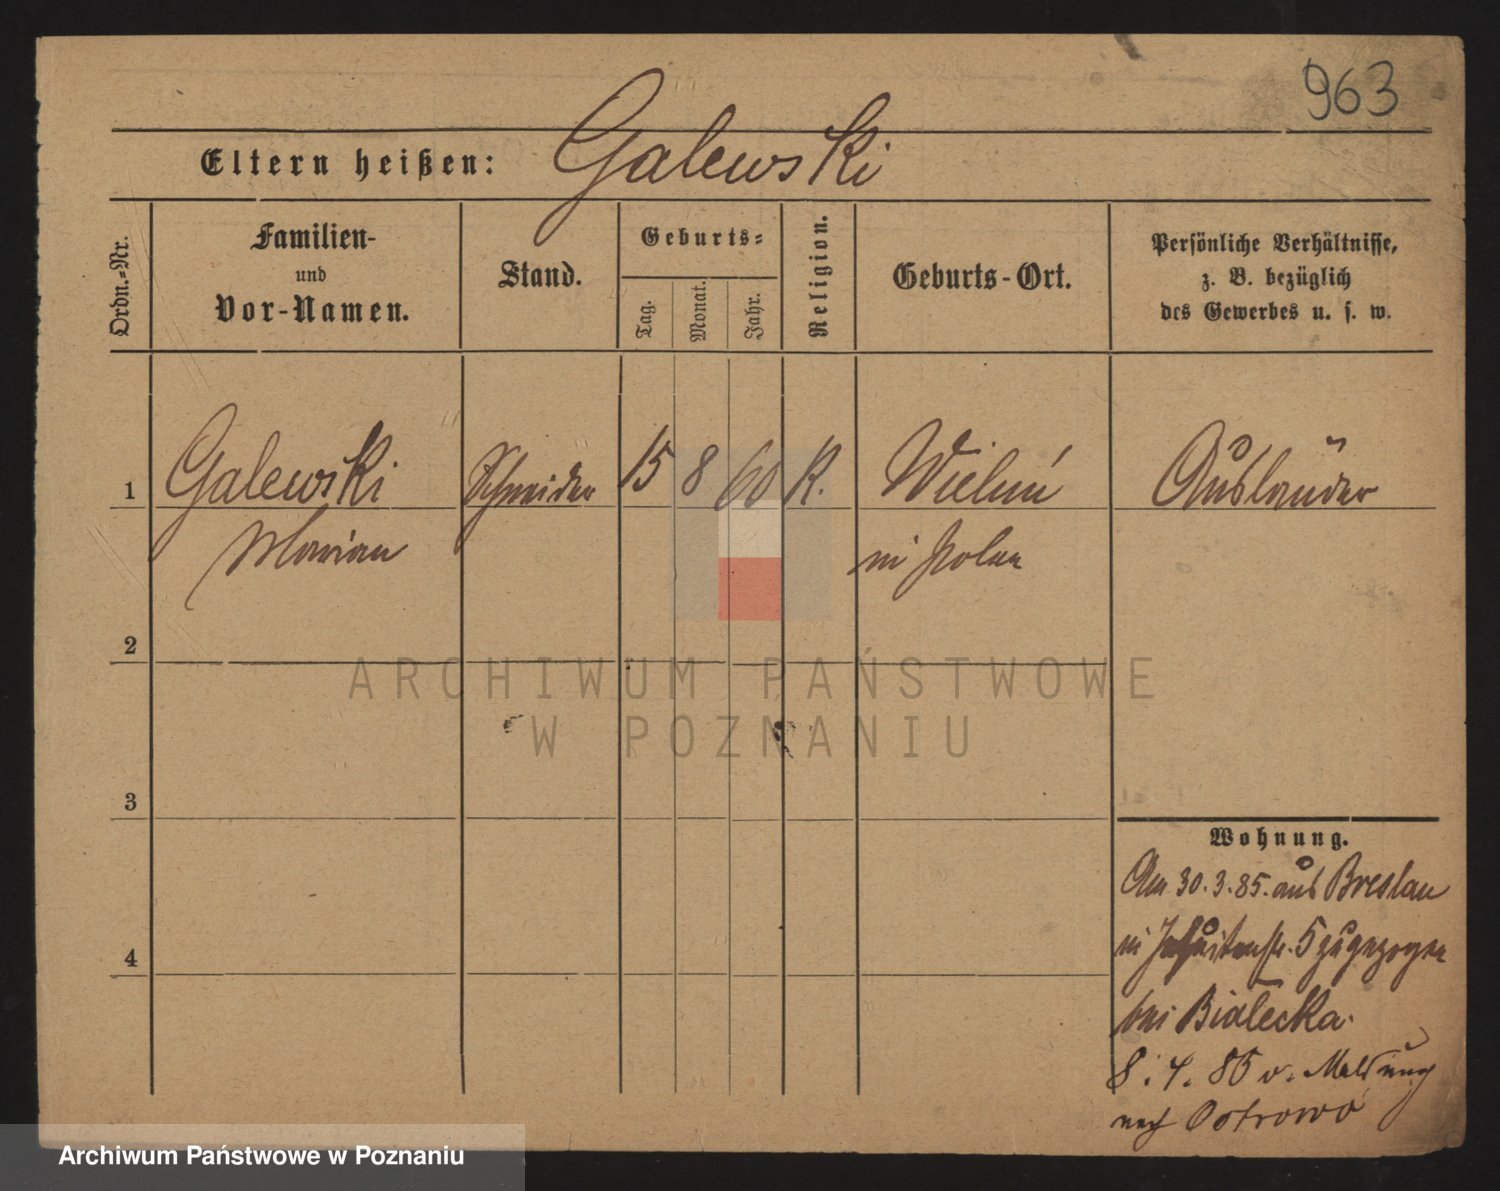 963
Eltern heißen: Galewski
Ordn.-Nr.
Familien-
und
Vor-Namen.
Stand.
Geburts-
Tag.
Monat.
Jahr.
Religion.
Geburts-Ort.
Persönliche Verhältnisse,
z. B. bezüglich
des Gewerbes u. s. w.
1 Galewski Schneider 15 8 60 K. Wieluń Ausländer
Marian in Polen
2
3
4
Wohnung.
Am 30.3.85. aus Breslau
in Jesuitenstr. 5 zugezogen
bei Bialecka.
8. 4. 85 o. Meldung
nach Ostrowo
ARCHIWUM PAŃSTWOWE
W POZNANIU
Archiwum Państwowe w Poznaniu